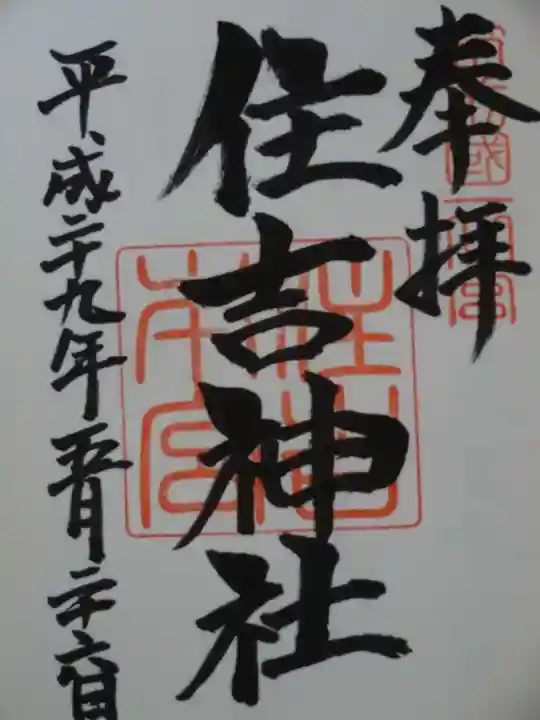 奉拝
住吉神社
平成二十九年五月二十六日